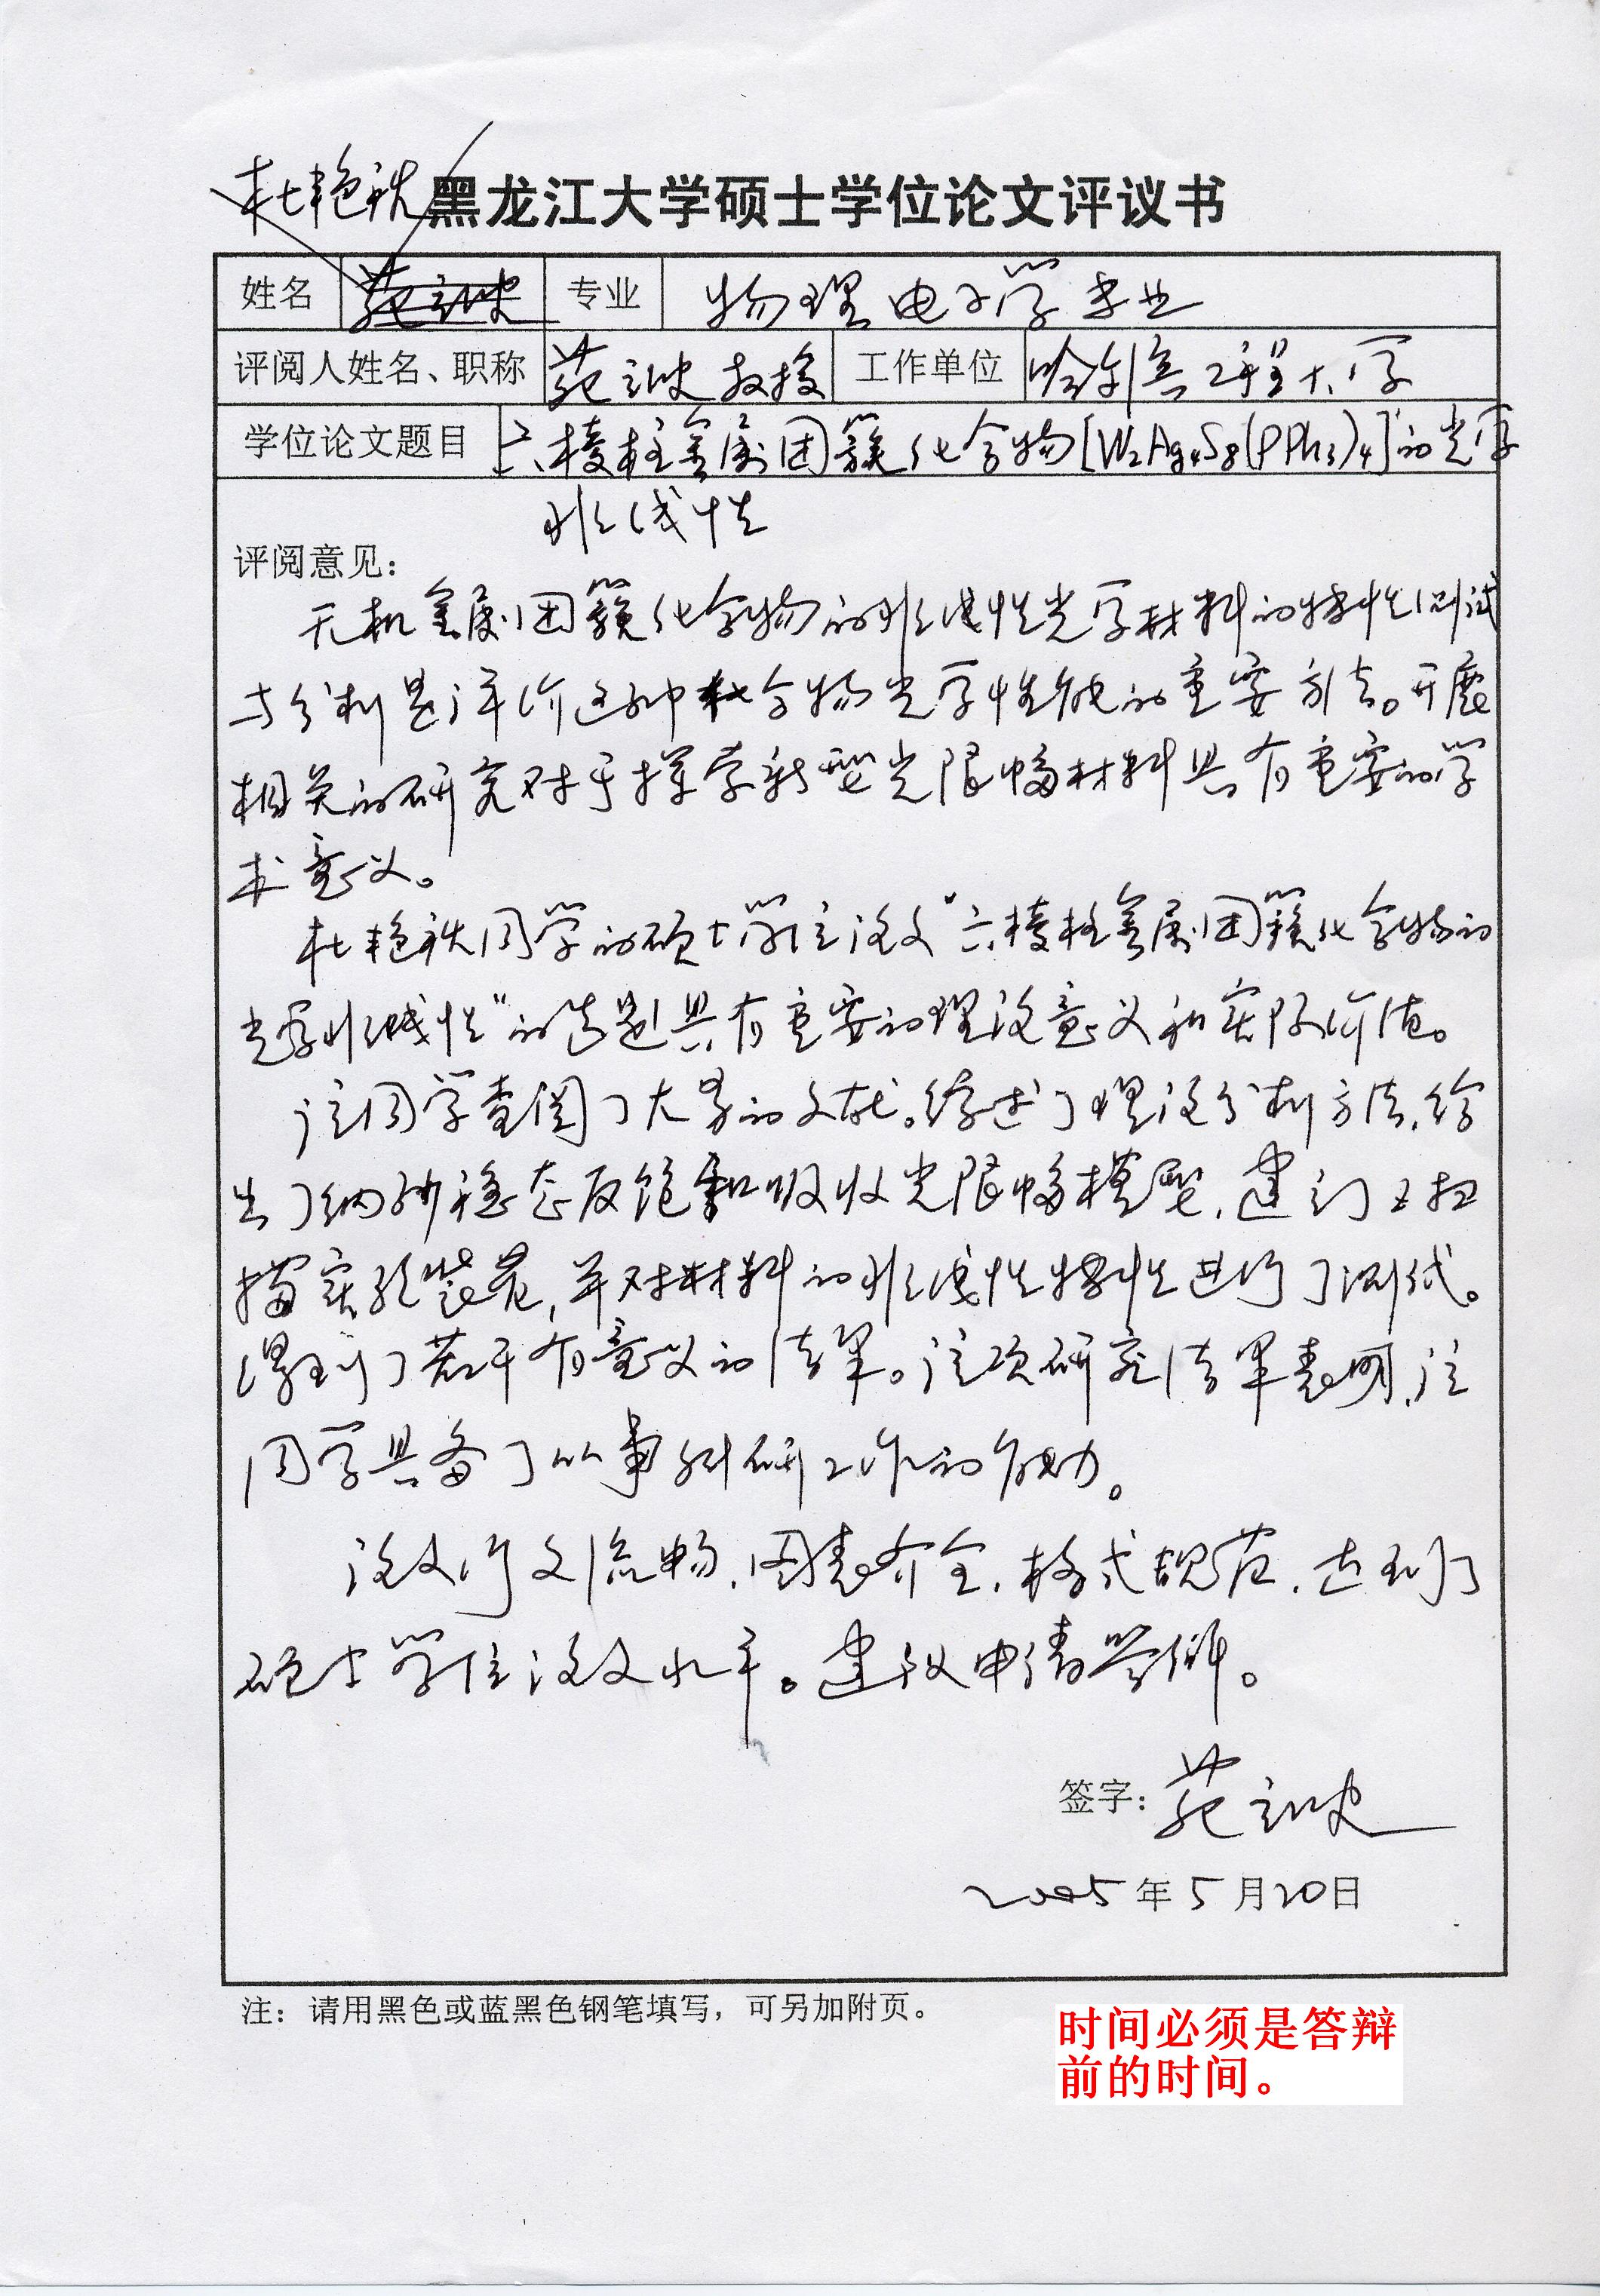 杜艳秋
黑龙江大学硕士学位论文评议书
姓名 苑立波 专业 物理电子学专业
评阅人姓名、职称 苑立波 教授 工作单位 哈尔滨工程大学
学位论文题目 六棱柱金属团簇化合物[W₂Ag₄S₈(PPh₃)₄]的光学
非线性
评阅意见：
无机金属团簇化合物的非线性光学材料的特性测试
与分析是评价这种化合物光学性能的重要方法。开展
相关的研究对于探索新型光限幅材料具有重要的学
术意义。
杜艳秋同学的硕士学位论文"六棱柱金属团簇化合物的
光学非线性"的选题具有重要的理论意义和实际价值。
该同学查阅了大量的文献。综述了理论分析方法，给
出了纳秒稳态反饱和吸收光限幅模型，建立了Z扫
描实验装置，并对材料的非线性特性进行了测试。
得到了若干有意义的结果。该项研究结果表明，该
同学具备了从事科研工作的能力。
论文行文流畅，图表齐全，格式规范，达到了
硕士学位论文水平。建议申请答辩。
签字：苑立波
2005年5月20日
注：请用黑色或蓝黑色钢笔填写，可另加附页。
时间必须是答辩
前的时间。